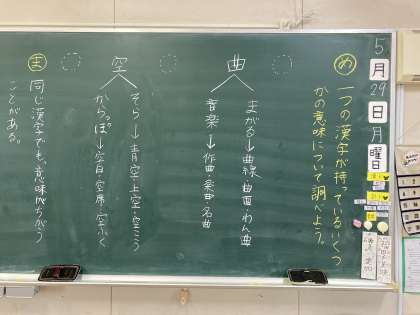 5
月
29
日
月
曜日
め
一つの漢字が持っているいくつ
かの意味について調べよう。
曲
まがる→曲線・曲面・わん曲
音楽→作曲・楽曲・名曲
空
そら→青空・上空・空こう
からっぽ→空白・空席・空ふく
ま
同じ漢字でも、意味がちがう
ことがある。